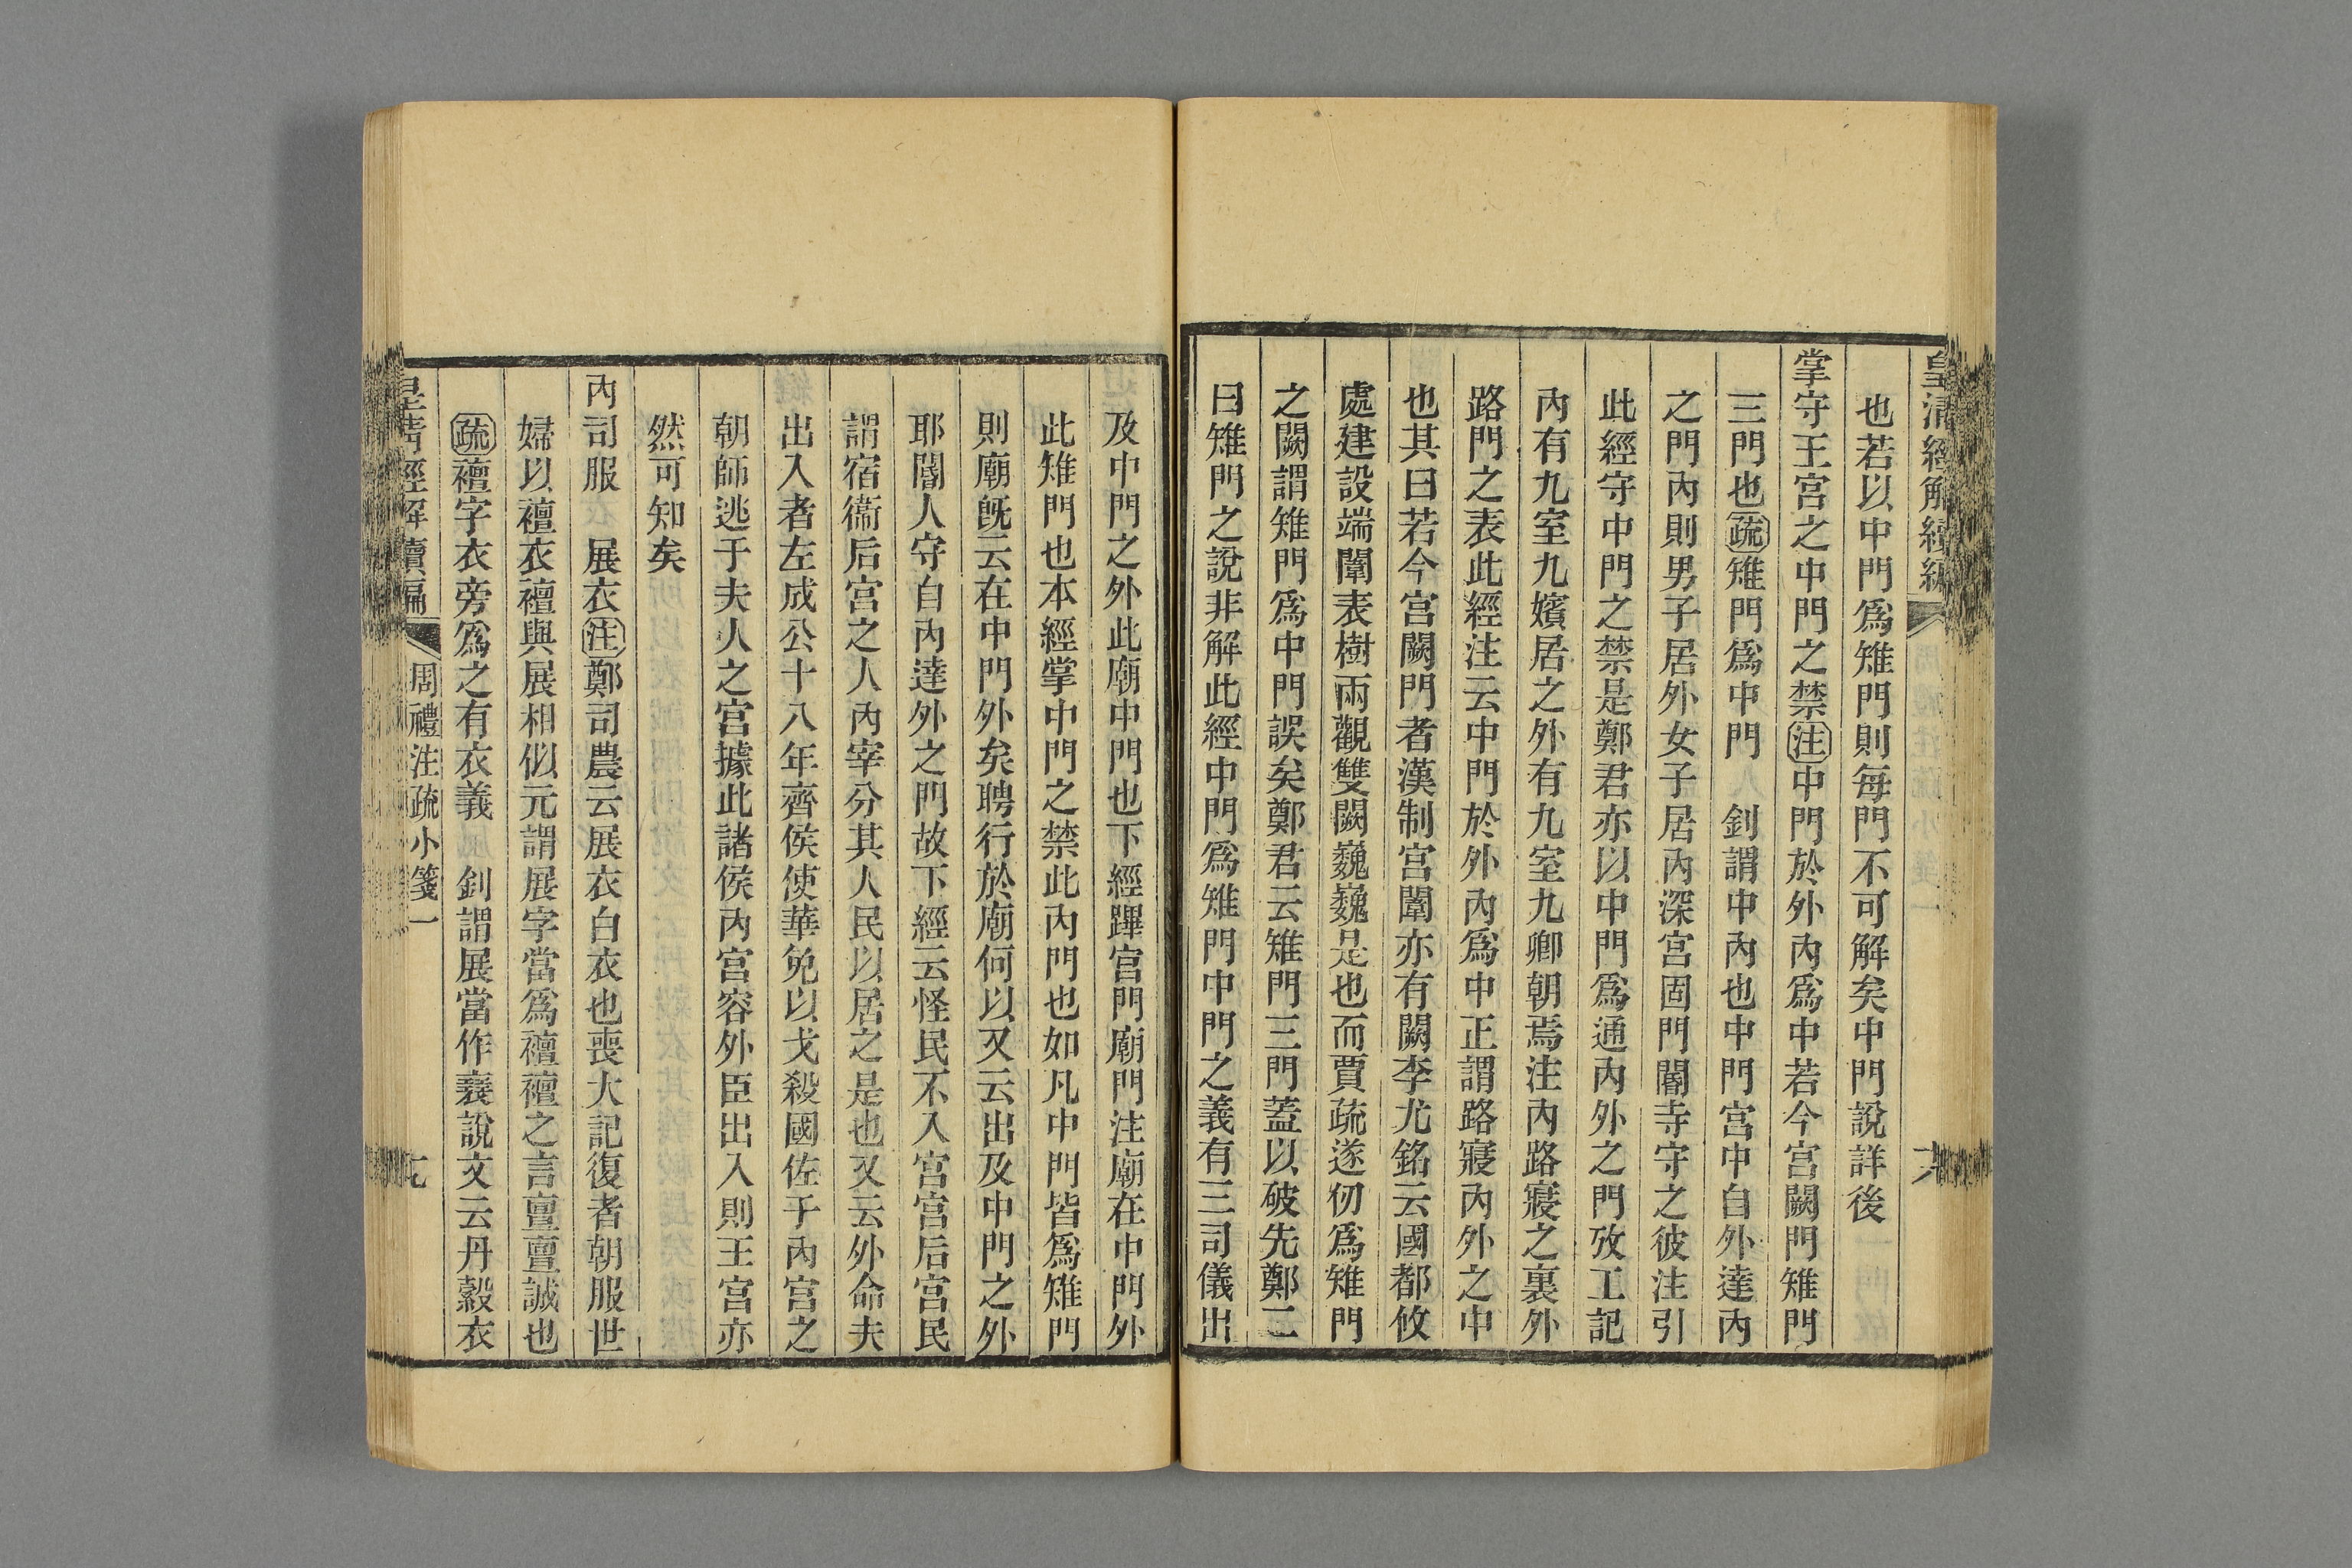 皇清經解續編
也若以中門爲雉門則每門不可解矣中門說詳後
掌守王宮之中門之禁注中門於外內爲中若今宮闕門雉門
三門也疏雉門爲中門 釗謂中內也中門宮中自外達內
之門內則男子居外女子居內深宮固門閽寺守之彼注引
此經守中門之禁是鄭君亦以中門爲通內外之門攷工記
內有九室九嬪居之外有九室九卿朝焉注內路寢之裏外
路門之表此經注云中門於外內爲中正謂路寢內外之中
也其曰若今宮闕門者漢制宮闈亦有闕李尤銘云國都攸
處建設端闈表樹兩觀雙闕巍巍是也而賈疏遂仞爲雉門
之闕謂雉門爲中門誤矣鄭君云雉門三門蓋以破先鄭二
曰雉門之說非解此經中門爲雉門中門之義有三司儀出
及中門之外此廟中門也下經蹕宮門廟門注廟在中門外
此雉門也本經掌中門之禁此內門也如凡中門皆爲雉門
則廟旣云在中門外矣聘行於廟何以又云出及中門之外
耶閽人守自內達外之門故下經云怪民不入宮宮后宮民
謂宿衞后宮之人內宰分其人民以居之是也又云外命夫
出入者左成公十八年齊侯使華免以戈殺國佐于內宮之
朝師逃于夫人之宮據此諸侯內宮容外臣出入則王宮亦
然可知矣
內司服 展衣注鄭司農云展衣白衣也喪大記復者朝服世
婦以襢衣襢與展相似元謂展字當爲襢襢之言亶亶誠也
疏襢字衣旁爲之有衣義 釗謂展當作襄說文云丹縠衣
皇清經解續編 周禮注疏小箋一